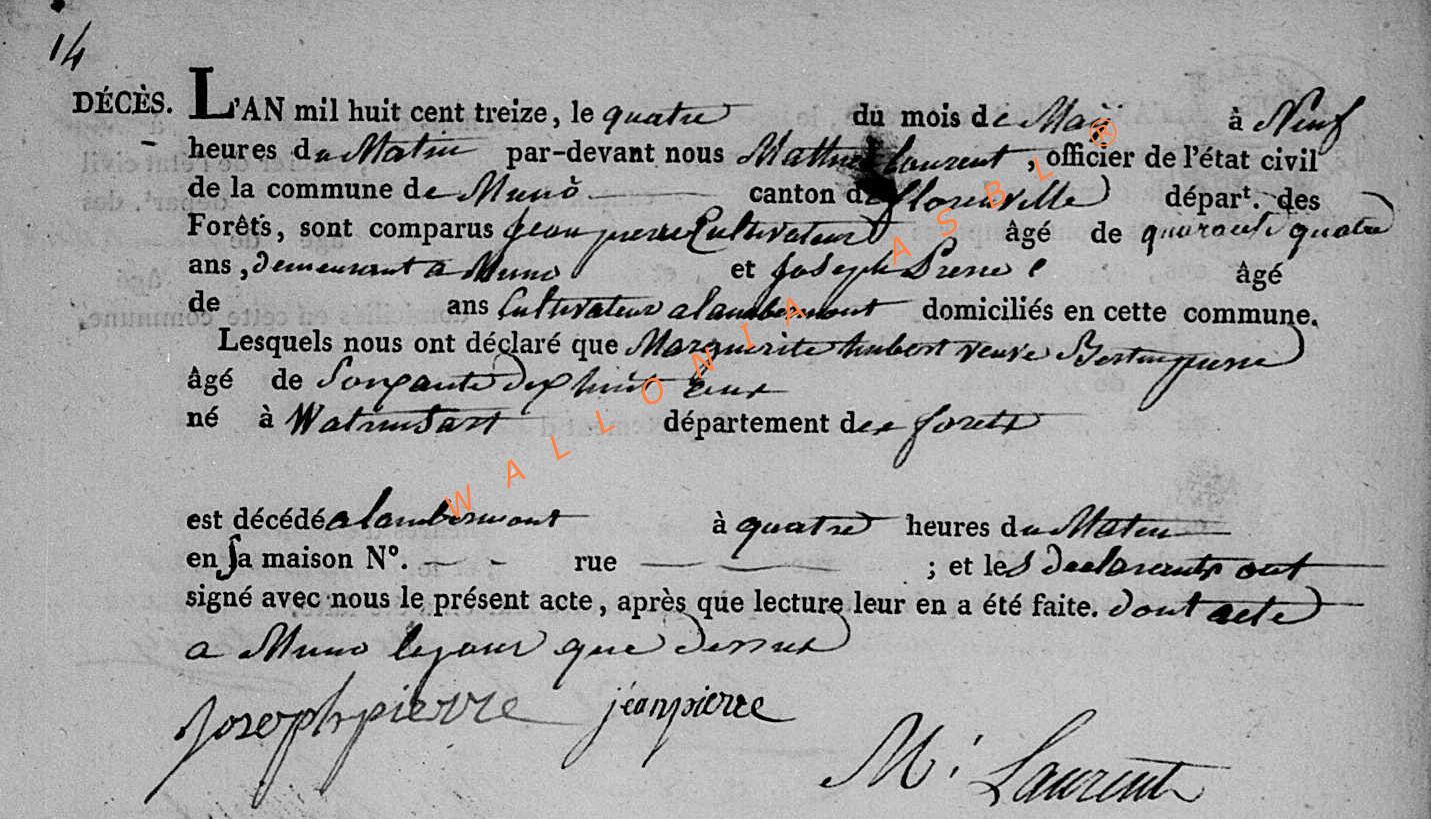 14
DÉCÈS. L'AN mil huit cent treize, le quatre du mois de May à Neuf
heures du Matin par-devant nous Mathieu Laurent, officier de l'état civil
de la commune de Muno canton de florenville départ. des
Forêts, sont comparus jean pierre Cultivateur âgé de quarante quatre
ans, demeurant a Muno et joseph Pierre âgé
de ans Cultivateur a lambermont domiciliés en cette commune.
Lesquels nous ont déclaré que Marguerite hubert veuve pierre
âgé de Soixante dix huit ans
né à Watrinsart département des forets
est décédé a lambermont à quatre heures du Matin
en sa maison N°. - - rue ; et les declarants ont
signé avec nous le présent acte, après que lecture leur en a été faite. dont acte
a Muno le jour que dessus
joseph pierre jean pierre
M. Laurent
WALLONIA ASBL ®